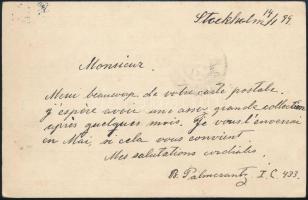 Stockholm 14/4 99.
Monsieur.
Merci beaucoup de votre carte postale.
J'espère avoir une assez grande collection
après quelques mois. Je vous l'enverrai
en Mai, si cela vous convient
Mes salutations cordiales
B. Palmcrantz I.C. 433.